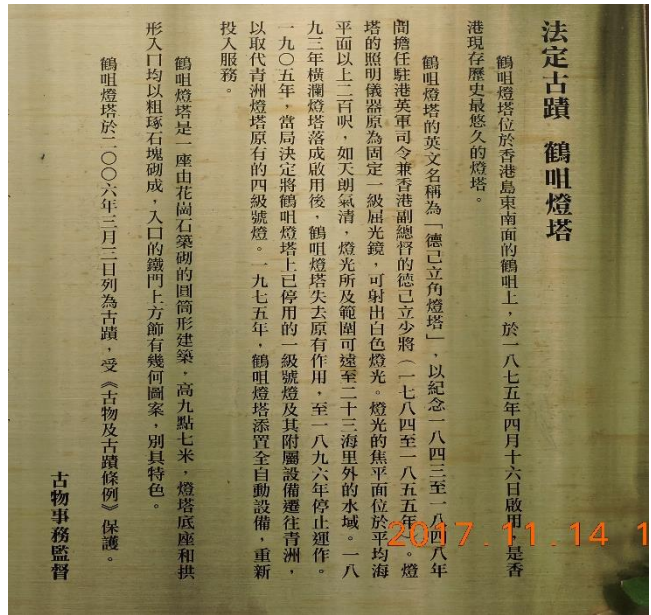 法定古蹟 鶴咀燈塔
鶴咀燈塔位於香港島東南面的鶴咀上，於一八七五年四月十六日啟用，是香
港現存歷史最悠久的燈塔。
鶴咀燈塔的英文名稱為「德己立角燈塔」，以紀念一八四三至一八四八年
間擔任駐港英軍司令兼香港副總督的德己立少將（一七八四至一八五五年）。燈
塔的照明儀器原為固定一級屈光鏡，可射出白色燈光。燈光的焦平面位於平均海
平面以上二百呎，如天朗氣清，燈光所及範圍可遠至二十三海里外的水域。一八
九三年橫瀾燈塔落成啟用後，鶴咀燈塔失去原有作用，至一八九六年停止運作。
一九〇五年，當局決定將鶴咀燈塔上已停用的一級號燈及其附屬設備遷往青洲，
以取代青洲燈塔原有的四級號燈。一九七五年，鶴咀燈塔添置全自動設備，重新
投入服務。
鶴咀燈塔是一座由花崗石築砌的圓筒形建築，高九點七米，燈塔底座和拱
形入口均以粗琢石塊砌成，入口的鐵門上方飾有幾何圖案，別具特色。
鶴咀燈塔於二〇〇六年三月三日列為古蹟，受《古物及古蹟條例》保護。
古物事務監督
2017.11.14 1